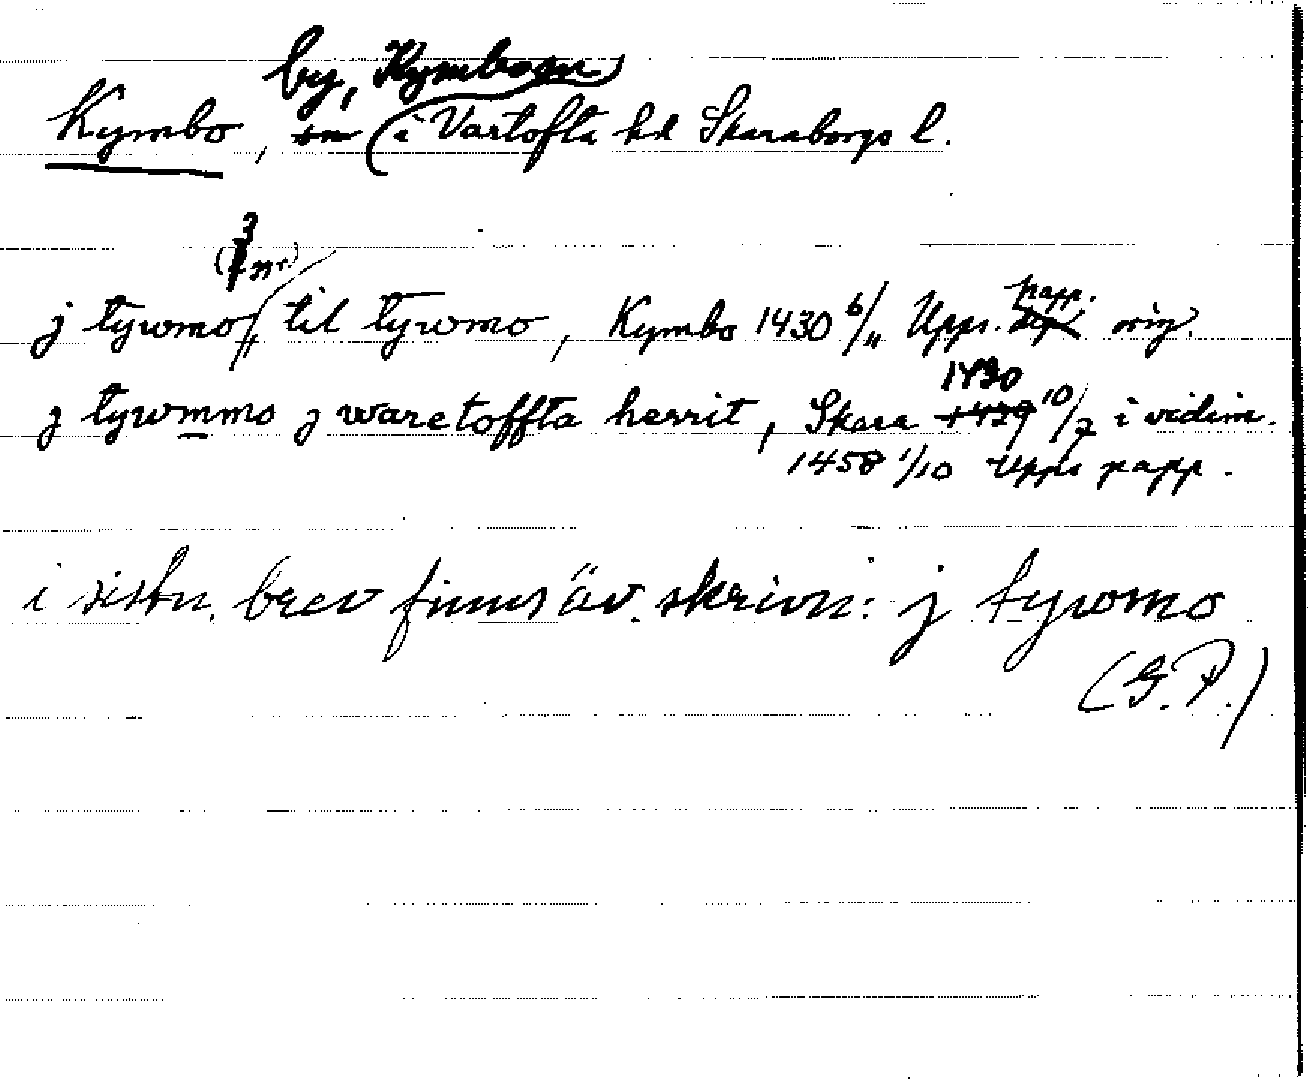 by, Kymbo sn
Kymbo, sn i Vartofta hd Skaraborgs l.
(3 ggr)
j tywmo, til tywmo, Kymbo 1430 6/11 Upps. papp. orig.
1430
j tywmmo j waretoffta herrit, Skara 1439 10/7 i vidim.
1458 1/10 Upps papp.
i sistn. brev finns äv. skrivn: j tywomo
(G.P.)